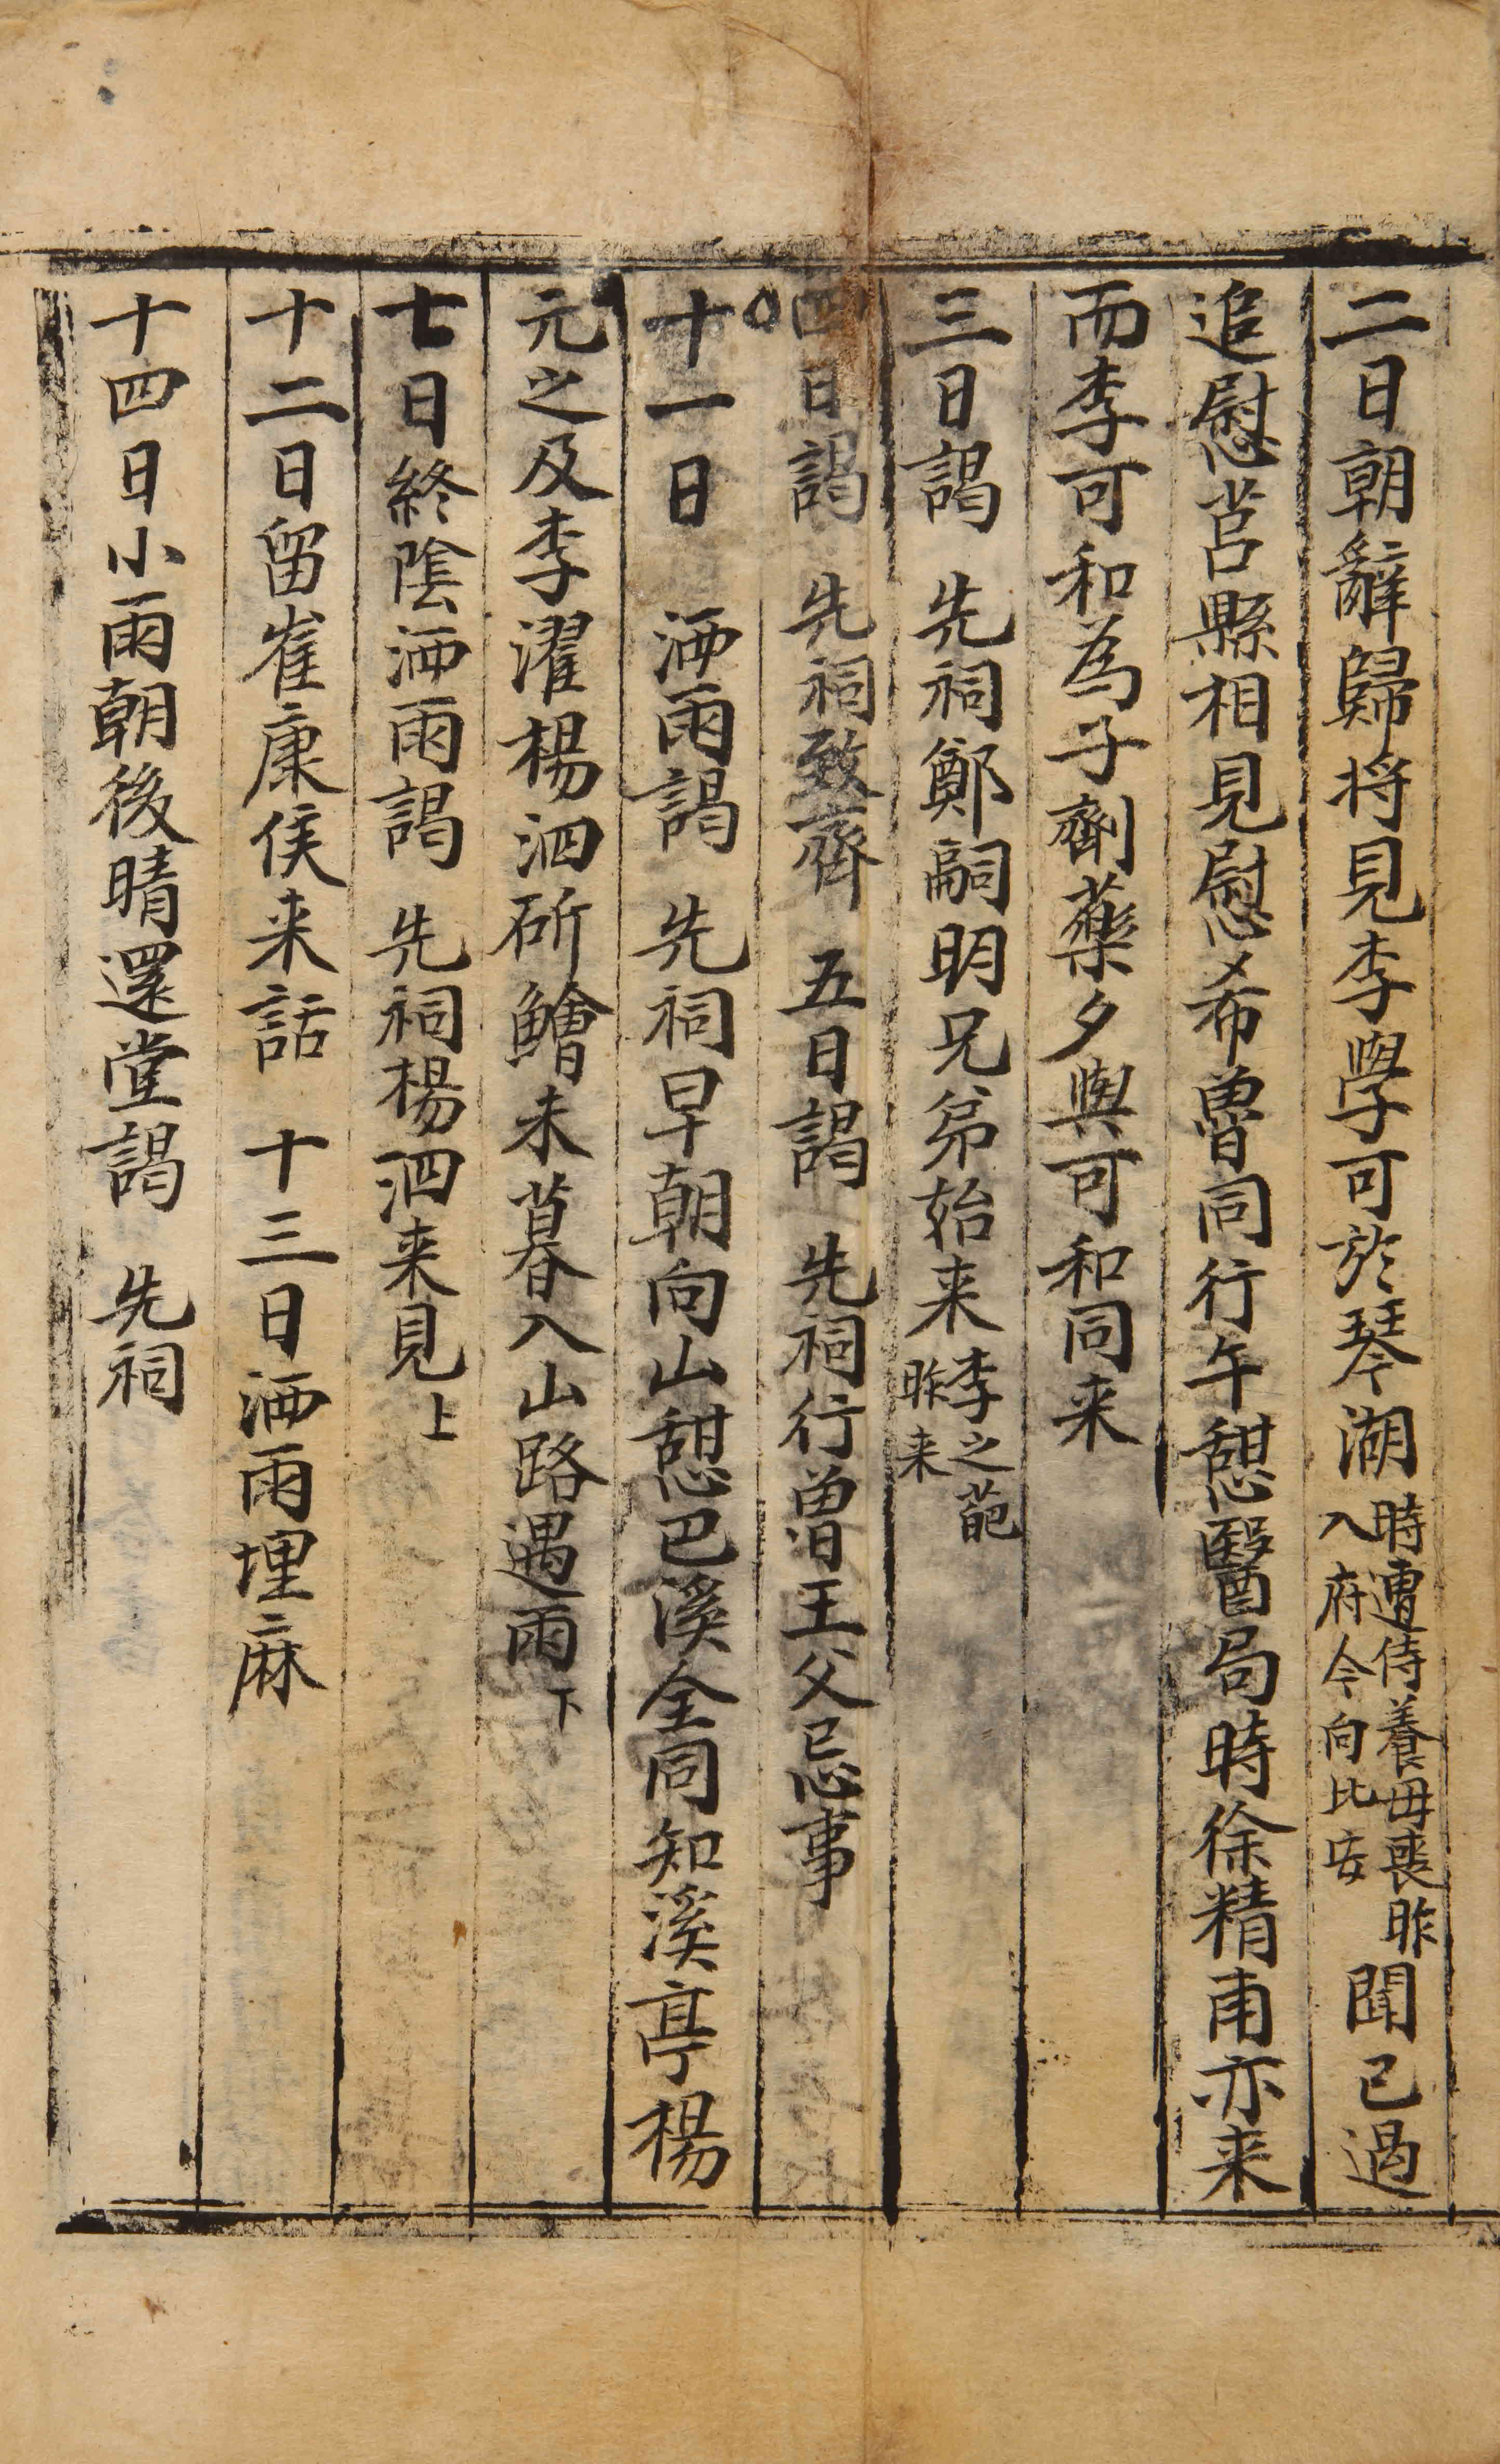 二日朝辭歸将見李學可於琴湖時遭侍養母喪昨入府令向比安聞已過
追慰莒縣相見慰希曽同行午憇醫局時徐精甫亦来
而李可和為子劑藥夕與可和同来
三日謁 先祠鄭嗣明兄弟始来李之葩昨来
四日謁 先祠致齊 五日謁 先祠行曽王父忌事
十一日 洒雨謁 先祠早朝向山憇巴溪全同知溪亭楊
元之及李濯楊泗斫鱠未暮入山路遇雨下
七日終陰洒雨謁 先祠楊泗来見上
十二日留崔康侯来話 十三日洒雨埋麻
十四日小雨朝後晴還堂謁 先祠